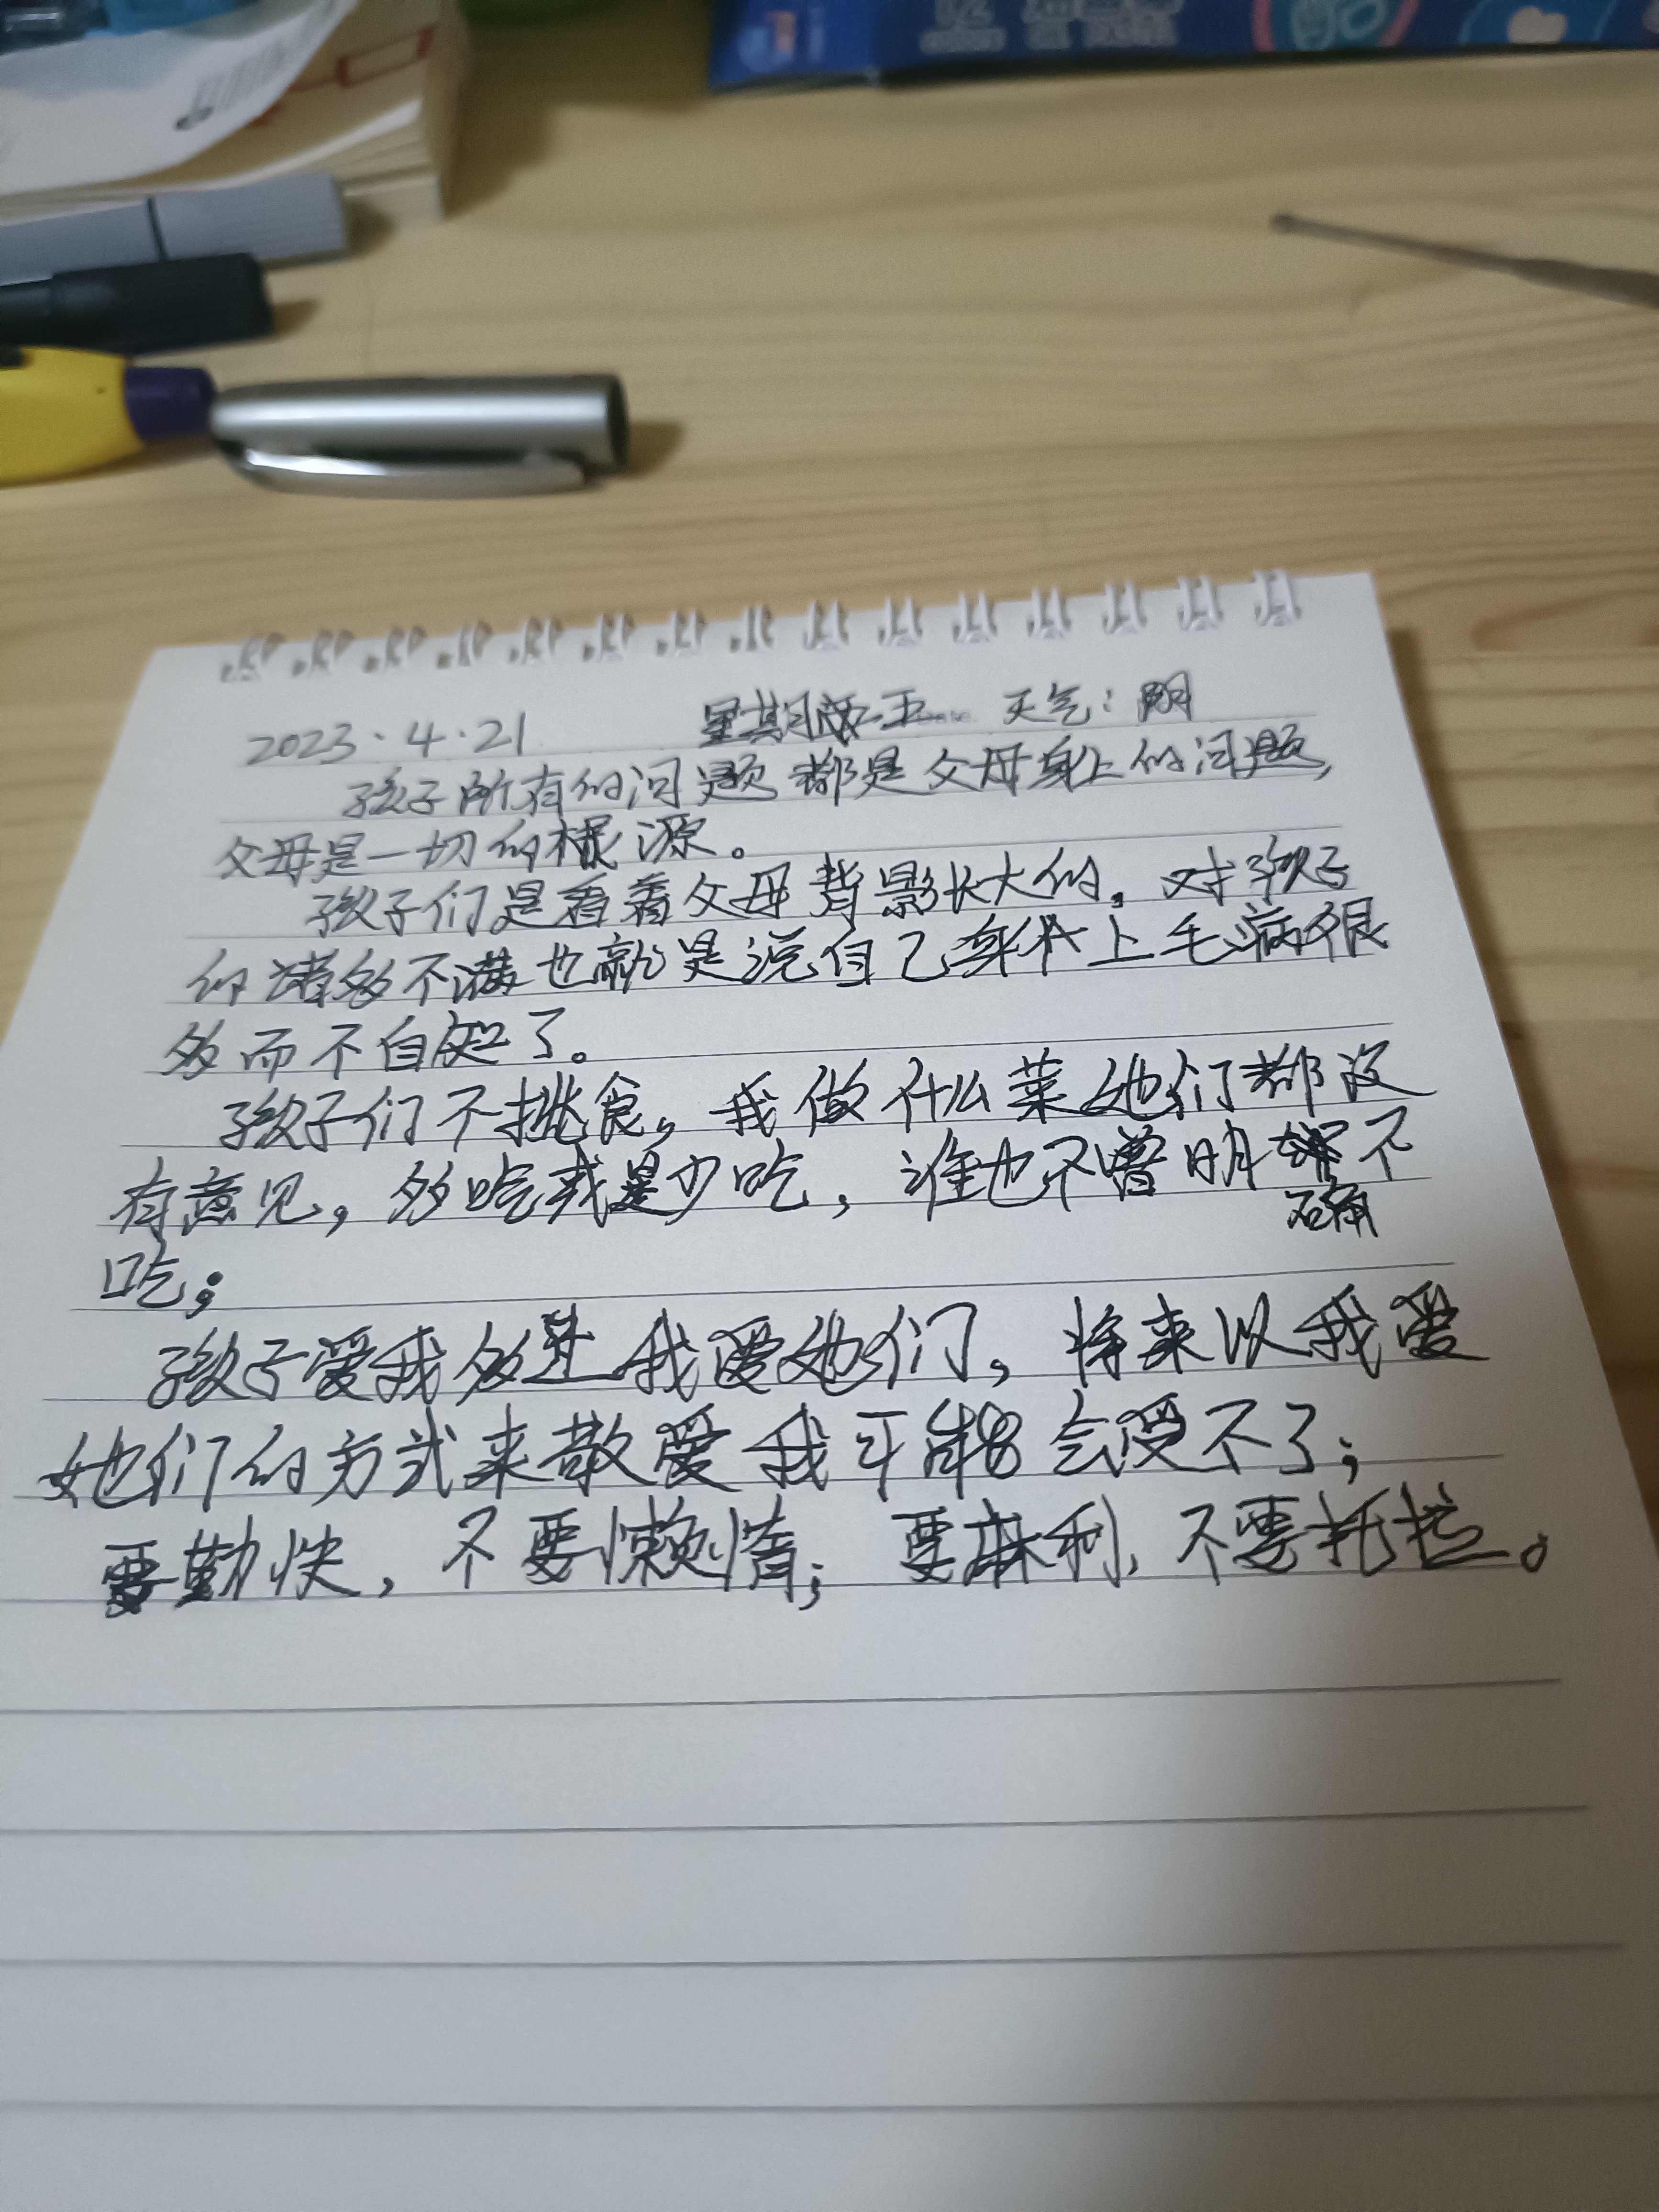 2023.4.21 星期五 天气：阴
孩子所有的问题都是父母身上的问题，
父母是一切的根源。
孩子们是看着父母背影长大的。对孩子
的诸多不满也就是说自己身上毛病很
多而不自知了。
孩子们不挑食，我做什么菜她们都没
有意见，多吃或是少吃，谁也不曾明确不
吃；
孩子爱我多过我爱她们，将来以我爱
她们的方式来敬爱我可能会受不了；
要勤快，不要懒惰；要麻利，不要托拉。